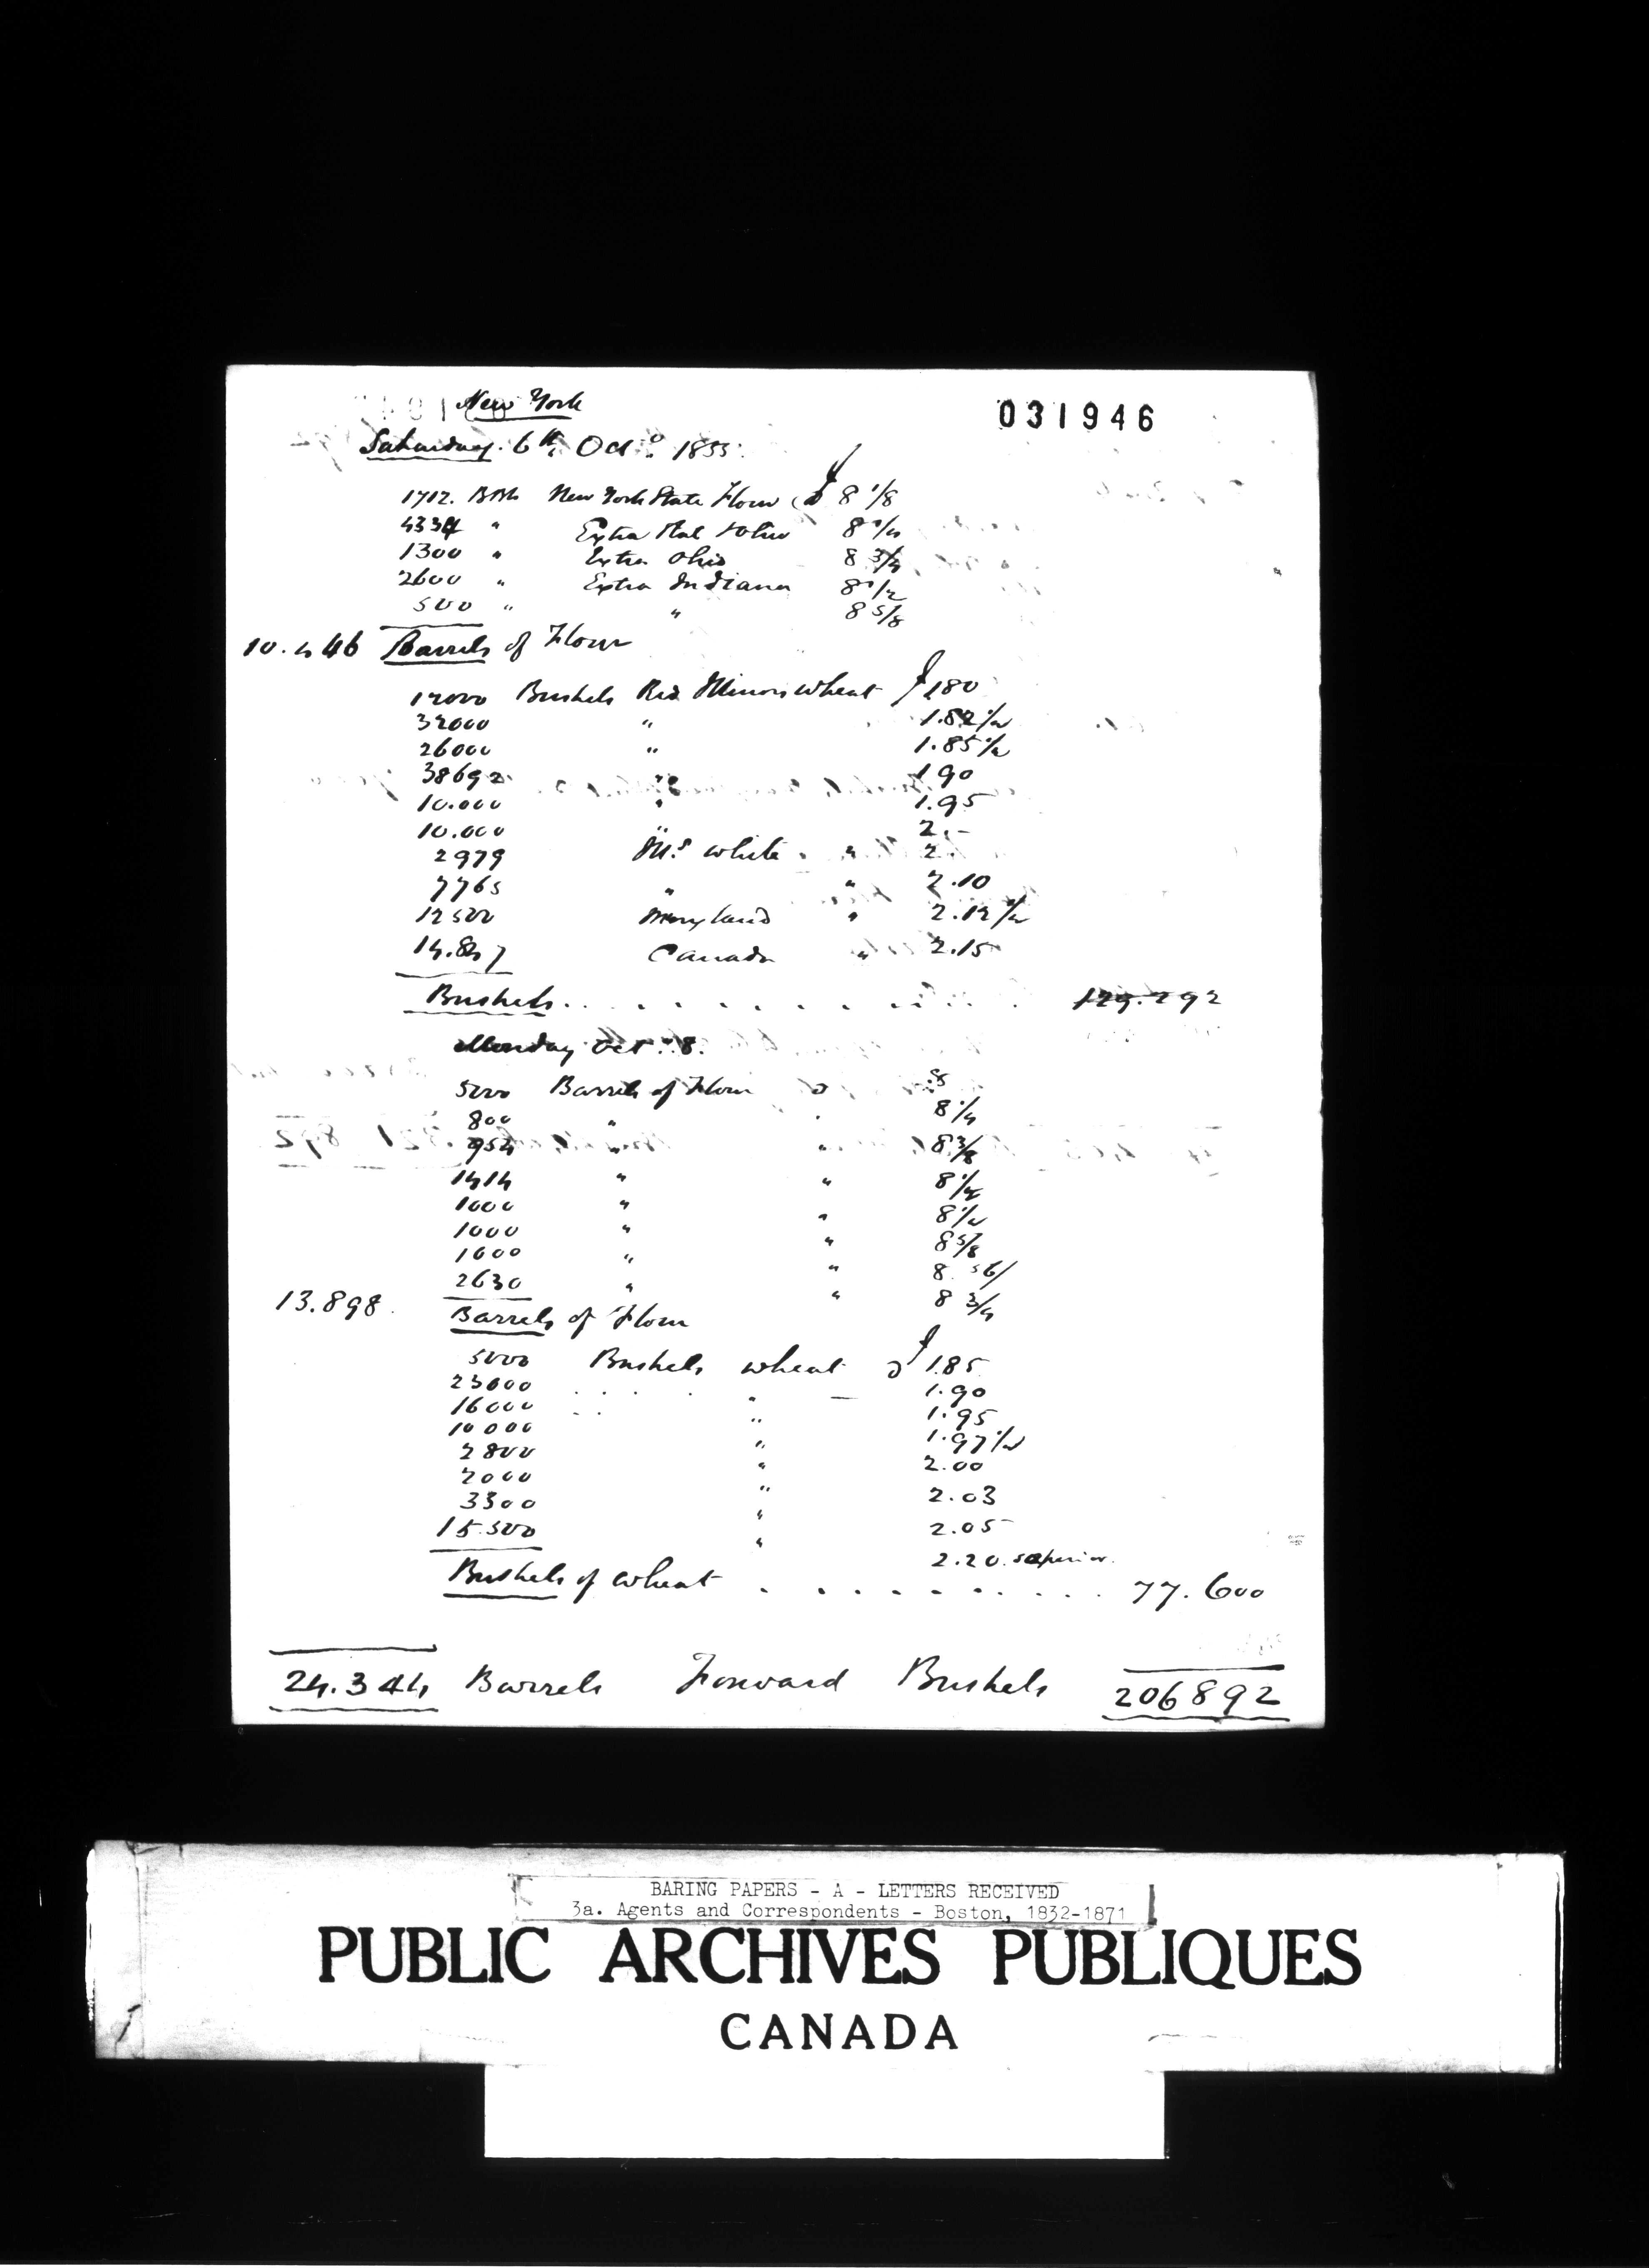 031946
New York
Saturday. 6th. Oct.o 1855.
1712. BBls New York State Flour @ $ 8 1/8
4334 " Extra State & Ohio 8 1/4
1300 " Extra Ohio 8 3/4
2600 " Extra Indiana 8 1/2
500 " " 8 5/8
10.446 Barrels of Flour
12000 Bushels Red Illinois wheat $ 1.80
32000 " 1.82 1/2
26000 " 1.85 1/2
38692 " 1 90
10.000 " 1.95
10.000 " 2.-
2979 Ill.s white " 2.
7765 " " 2.10
12500 Maryland " 2.12 1/2
14.847 Canada " 2.15
Bushels . . . . . . . . . . . 129.292
Monday Oct. 8.
5000 Barrels of Flour @ 8
800 " " 8 1/4
954 " " 8 3/8
1414 " " 8 1/4
1000 " " 8 1/2
1000 " " 8 5/8
1600 " " 8 56/
2630 " " 8 3/4
13.898. Barrels of Flour
5000 Bushels wheat @ $ 1.85
23000 . . . . " — 1.90
16000 . . " 1.95
10000 " 1.97 1/2
2800 " 2.00
2000 " 2.03
3300 " 2.05
15.500 " 2.20. superior.
Bushels of wheat . . . . . . . . . . . 77.600
24.344 Barrels Forward Bushels 206892
BARING PAPERS - A - LETTERS RECEIVED
3a. Agents and Correspondents - Boston, 1832-1871
PUBLIC ARCHIVES PUBLIQUES
CANADA